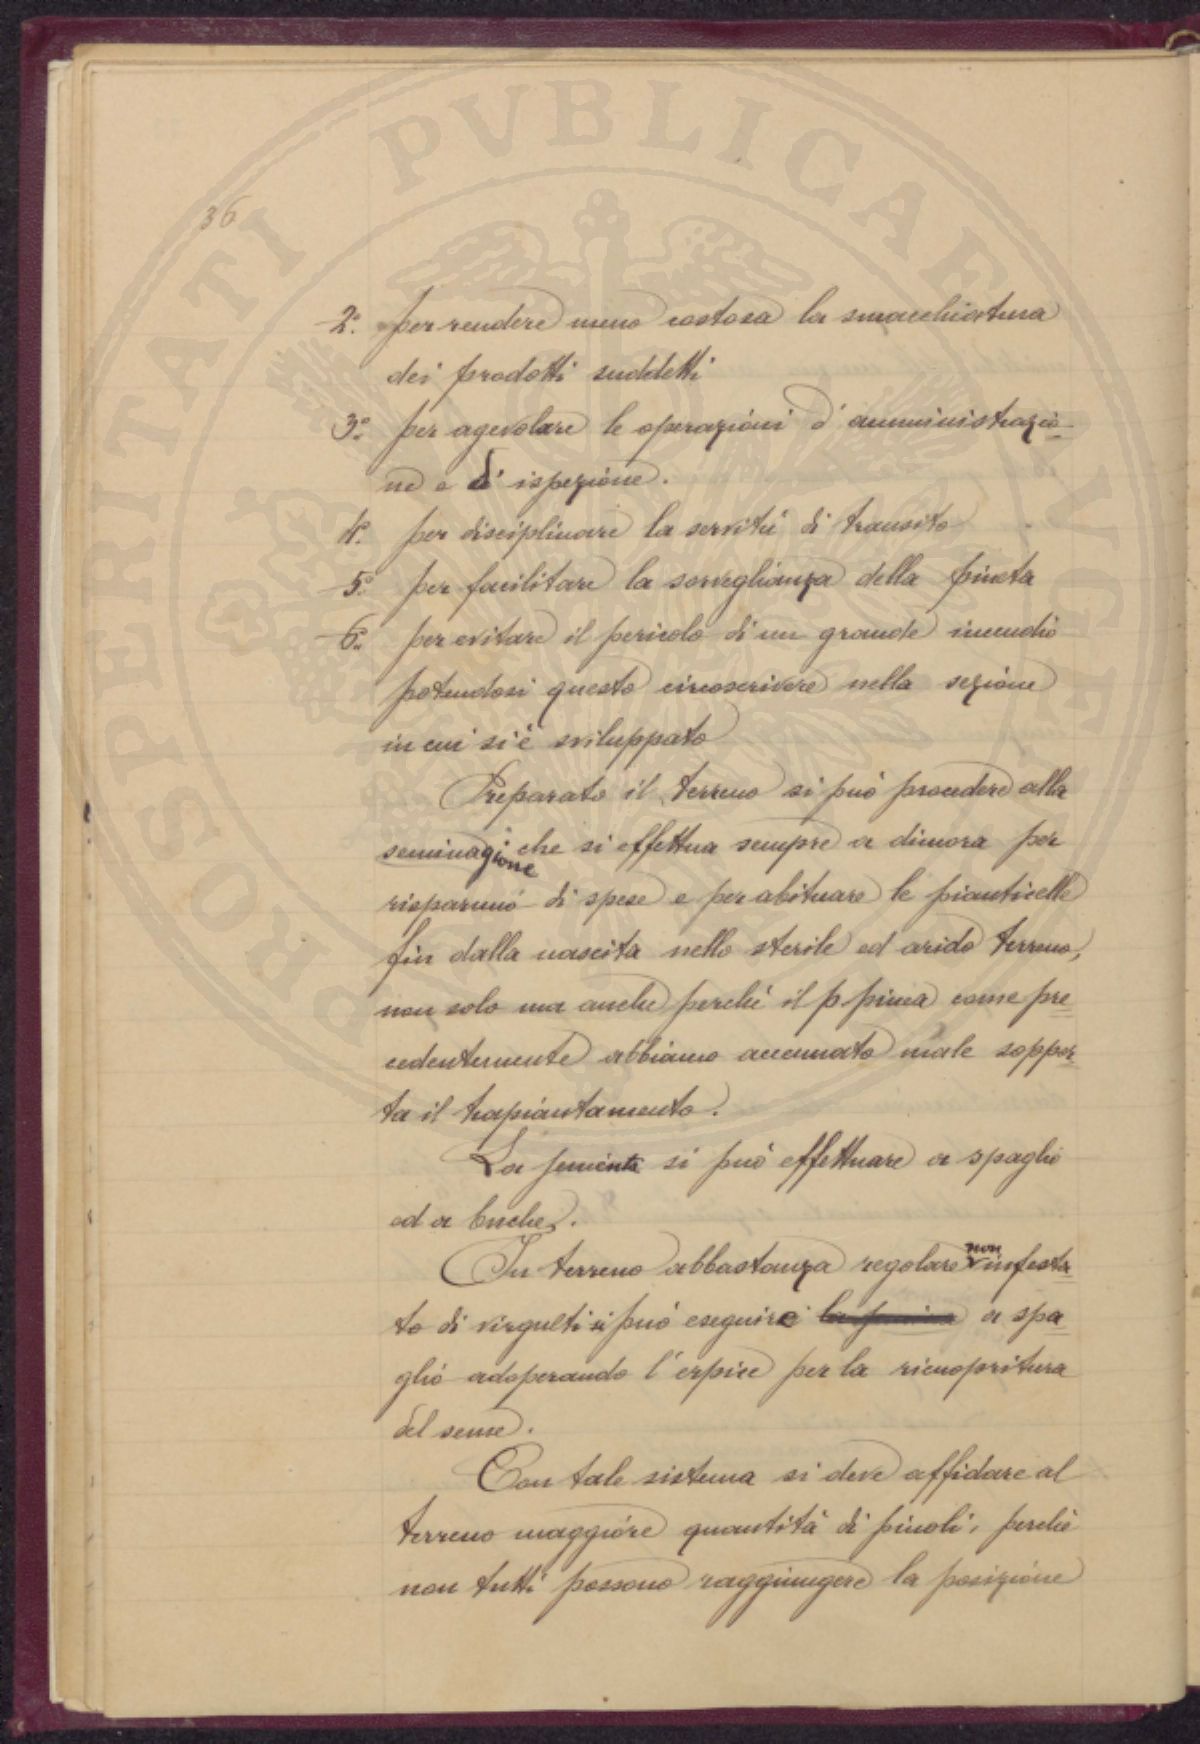 PROSPERITATI PVBLICAE AVGENDAE
36
2.° per rendere meno costosa la smacchiatura
dei prodotti suddetti
3.° per agevolare le operazioni d'amministrazio-
ne e di ispezione.
4.° per disciplinare la servitù di transito
5.° per facilitare la sorveglianza della pineta
6.° per evitare il pericolo di un grande incendio
potendosi questo circoscrivere nella sezione
in cui si è sviluppato
Preparato il terreno si può procedere alla
seminagione che si effettua sempre a dimora per
risparmio di spese e per abituare le pianticelle
fin dalla nascita nello sterile ed arido terreno,
non solo ma anche perché il p pinea come pre=
cedentemente abbiamo accennato male soppor=
ta il trapiantamento.
La sementa si può effettuare a spaglio
ed a buche.
In terreno abbastanza regolare non infesta=
to di virgulti si può eseguire a spa=
glio adoperando l'erpice per la ricuopritura
del seme.
Con tale sistema si deve affidare al
terreno maggiore quantità di pinoli, perché
non tutti possono raggiungere la posizione